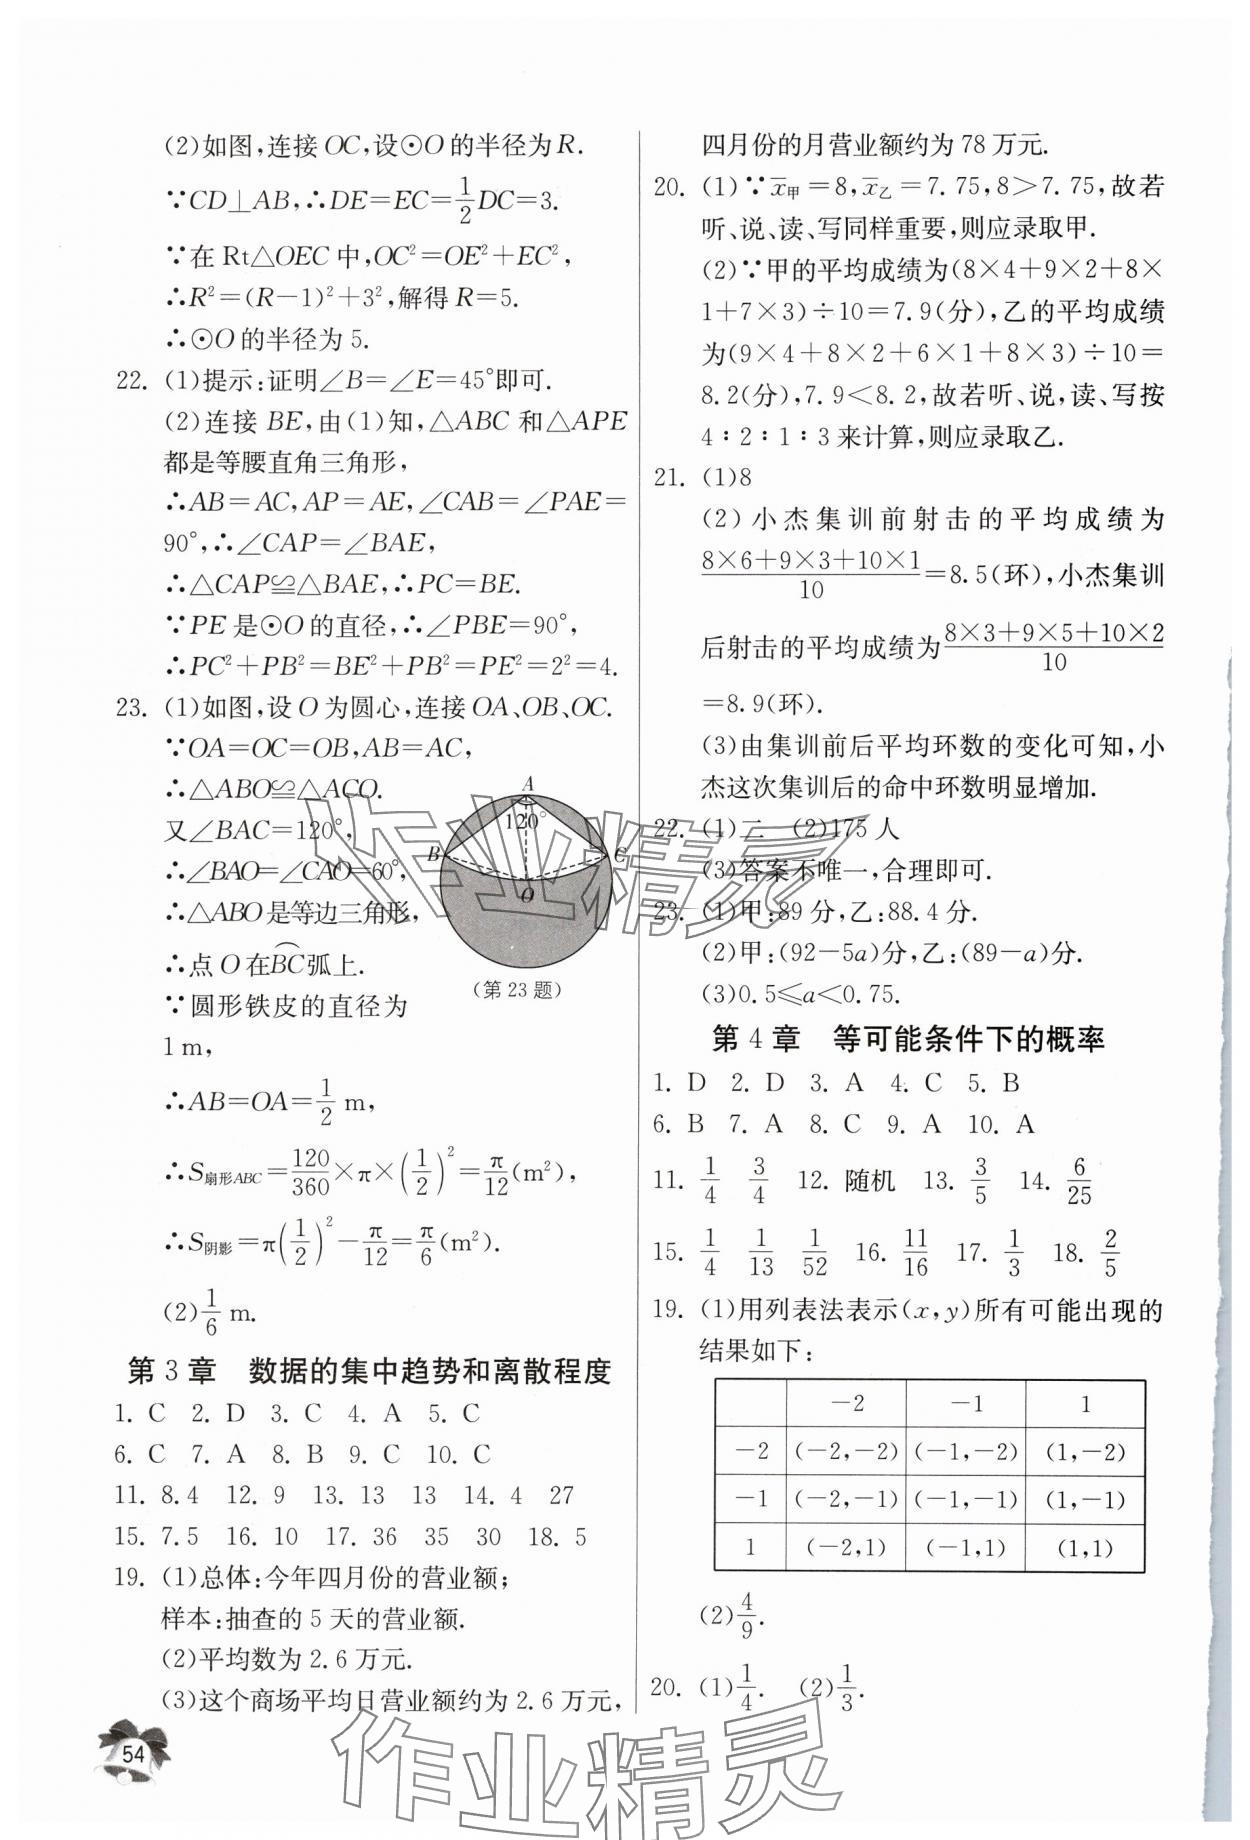 (2)如图,连接OC,设⊙O的半径为R.
∵CD⊥AB,∴DE=EC=1/2DC=3.
∵在Rt△OEC中,OC²=OE²+EC²,
∴R²=(R-1)²+3²,解得R=5.
∴⊙O的半径为5.
22. (1)提示:证明∠B=∠E=45°即可.
(2)连接BE,由(1)知,△ABC和△APE
都是等腰直角三角形,
∴AB=AC,AP=AE,∠CAB=∠PAE=
90°,∴∠CAP=∠BAE,
∴△CAP≌△BAE,∴PC=BE.
∵PE是⊙O的直径,∴∠PBE=90°,
∴PC²+PB²=BE²+PB²=PE²=2²=4.
23. (1)如图,设O为圆心,连接OA、OB、OC.
∵OA=OC=OB,AB=AC,
∴△ABO≌△ACO.
又∠BAC=120°,
∴∠BAO=∠CAO=60°,
∴△ABO是等边三角形,
∴点O在BC弧上.
∵圆形铁皮的直径为
1 m,
∴AB=OA=1/2 m,
∴S扇形ABC=120/360×π×(1/2)²=π/12(m²),
∴S阴影=π(1/2)²-π/12=π/6(m²).
(2)1/6 m.
A
120°
B
C
O
(第23题)
第3章 数据的集中趋势和离散程度
1. C 2. D 3. C 4. A 5. C
6. C 7. A 8. B 9. C 10. C
11. 8.4 12. 9 13. 13 13 14. 4 27
15. 7.5 16. 10 17. 36 35 30 18. 5
19. (1)总体:今年四月份的营业额;
样本:抽查的5天的营业额.
(2)平均数为2.6万元.
(3)这个商场平均日营业额约为2.6万元,
54
四月份的月营业额约为78万元.
20. (1)∵x̄甲=8,x̄乙=7.75,8>7.75,故若
听、说、读、写同样重要,则应录取甲.
(2)∵甲的平均成绩为(8×4+9×2+8×
1+7×3)÷10=7.9(分),乙的平均成绩
为(9×4+8×2+6×1+8×3)÷10=
8.2(分),7.9<8.2,故若听、说,读、写按
4∶2∶1∶3来计算,则应录取乙.
21. (1)8
(2)小杰集训前射击的平均成绩为
(8×6+9×3+10×1)/10=8.5(环),小杰集训
后射击的平均成绩为(8×3+9×5+10×2)/10
=8.9(环).
(3)由集训前后平均环数的变化可知,小
杰这次集训后的命中环数明显增加.
22. (1)二 (2)175人
(3)答案不唯一,合理即可.
23. (1)甲:89分,乙:88.4分.
(2)甲:(92-5a)分,乙:(89-a)分.
(3)0.5≤a<0.75.
第4章 等可能条件下的概率
1. D 2. D 3. A 4. C 5. B
6. B 7. A 8. C 9. A 10. A
11. 1/4 3/4 12. 随机 13. 3/5 14. 6/25
15. 1/4 1/13 1/52 16. 11/16 17. 1/3 18. 2/5
19. (1)用列表法表示(x,y)所有可能出现的
结果如下:
-2 -1 1
-2 (-2,-2) (-1,-2) (1,-2)
-1 (-2,-1) (-1,-1) (1,-1)
1 (-2,1) (-1,1) (1,1)
(2)4/9.
20. (1)1/4. (2)1/3.
作业精灵
作业精灵